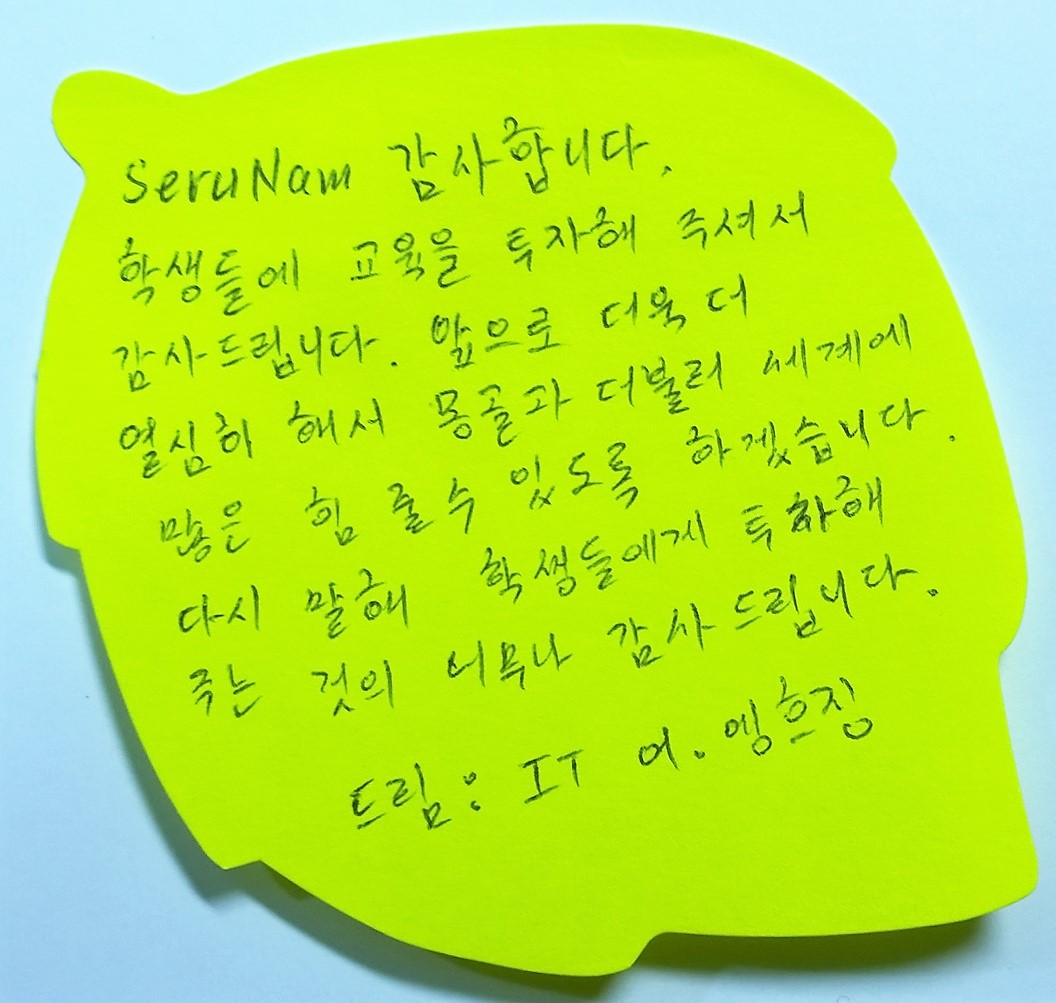 SeruNam 감사합니다.
학생들에 교육을 투자해 주셔서
감사드립니다. 앞으로 더욱 더
열심히 해서 몽골과 더불러 세계에
많은 힘 줄수 있도록 하겠습니다.
다시 말해 학생들에게 투자해
주는 것의 너무나 감사드립니다.
드림: IT 어. 엥흐징